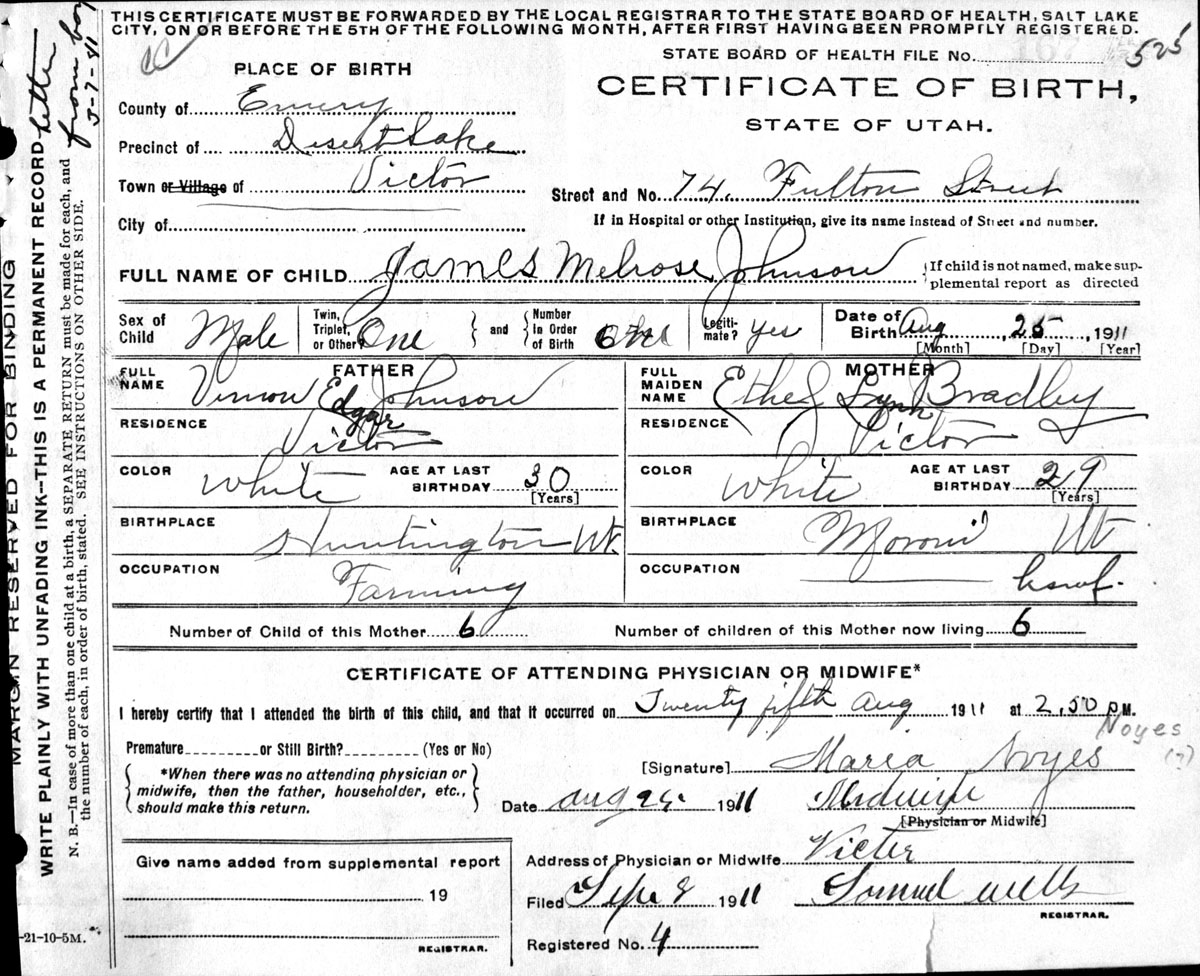 THIS CERTIFICATE MUST BE FORWARDED BY THE LOCAL REGISTRAR TO THE STATE BOARD OF HEALTH, SALT LAKE
CITY, ON OR BEFORE THE 5TH OF THE FOLLOWING MONTH, AFTER FIRST HAVING BEEN PROMPTLY REGISTERED.
STATE BOARD OF HEALTH FILE No. 525
PLACE OF BIRTH
CERTIFICATE OF BIRTH,
STATE OF UTAH.
County of Emery
Precinct of Desert Lake
Town or Village of Victor
Street and No. 74. Fulton Street
City of
If in Hospital or other Institution, give its name instead of Street and number.
FULL NAME OF CHILD James Melrose Johnson
{If child is not named, make sup-
plemental report as directed
Sex of Child Male
Twin, Triplet, or Other? One } and { Number in Order of Birth One
Legiti-mate? yes
Date of Birth Aug 25, 1911
[Month] [Day] [Year]
FATHER
FULL NAME Vernon Edgar Johnson
RESIDENCE Victor
COLOR White
AGE AT LAST BIRTHDAY 30
[Years]
BIRTHPLACE Huntington Ut.
OCCUPATION Farming
MOTHER
FULL MAIDEN NAME Ethel Lynn Bradley
RESIDENCE Victor
COLOR White
AGE AT LAST BIRTHDAY 29
[Years]
BIRTHPLACE Moroni Ut
OCCUPATION hswf.
Number of Child of this Mother 6
Number of children of this Mother now living 6
CERTIFICATE OF ATTENDING PHYSICIAN OR MIDWIFE*
I hereby certify that I attended the birth of this child, and that it occurred on Twenty fifth Aug 1911 at 2,50 P.M.
Noyes
(?)
Premature or Still Birth? (Yes or No)
[Signature] Maria Noyes
{ *When there was no attending physician or
midwife, then the father, householder, etc.,
should make this return. }
Date Aug 25. 1911
Midwife
[Physician or Midwife]
Give name added from supplemental report
19
REGISTRAR.
Address of Physician or Midwife Victor
Filed Sept 8 1911
Samuel Wells
REGISTRAR.
Registered No. 4
-21-10-5M.
MARGIN RESERVED FOR BINDING
WRITE PLAINLY WITH UNFADING INK--THIS IS A PERMANENT RECORD
N. B.—In case of more than one child at a birth, a SEPARATE RETURN must be made for each, and
the number of each, in order of birth, stated. SEE INSTRUCTIONS ON OTHER SIDE.
letter
from boy
3-7-41